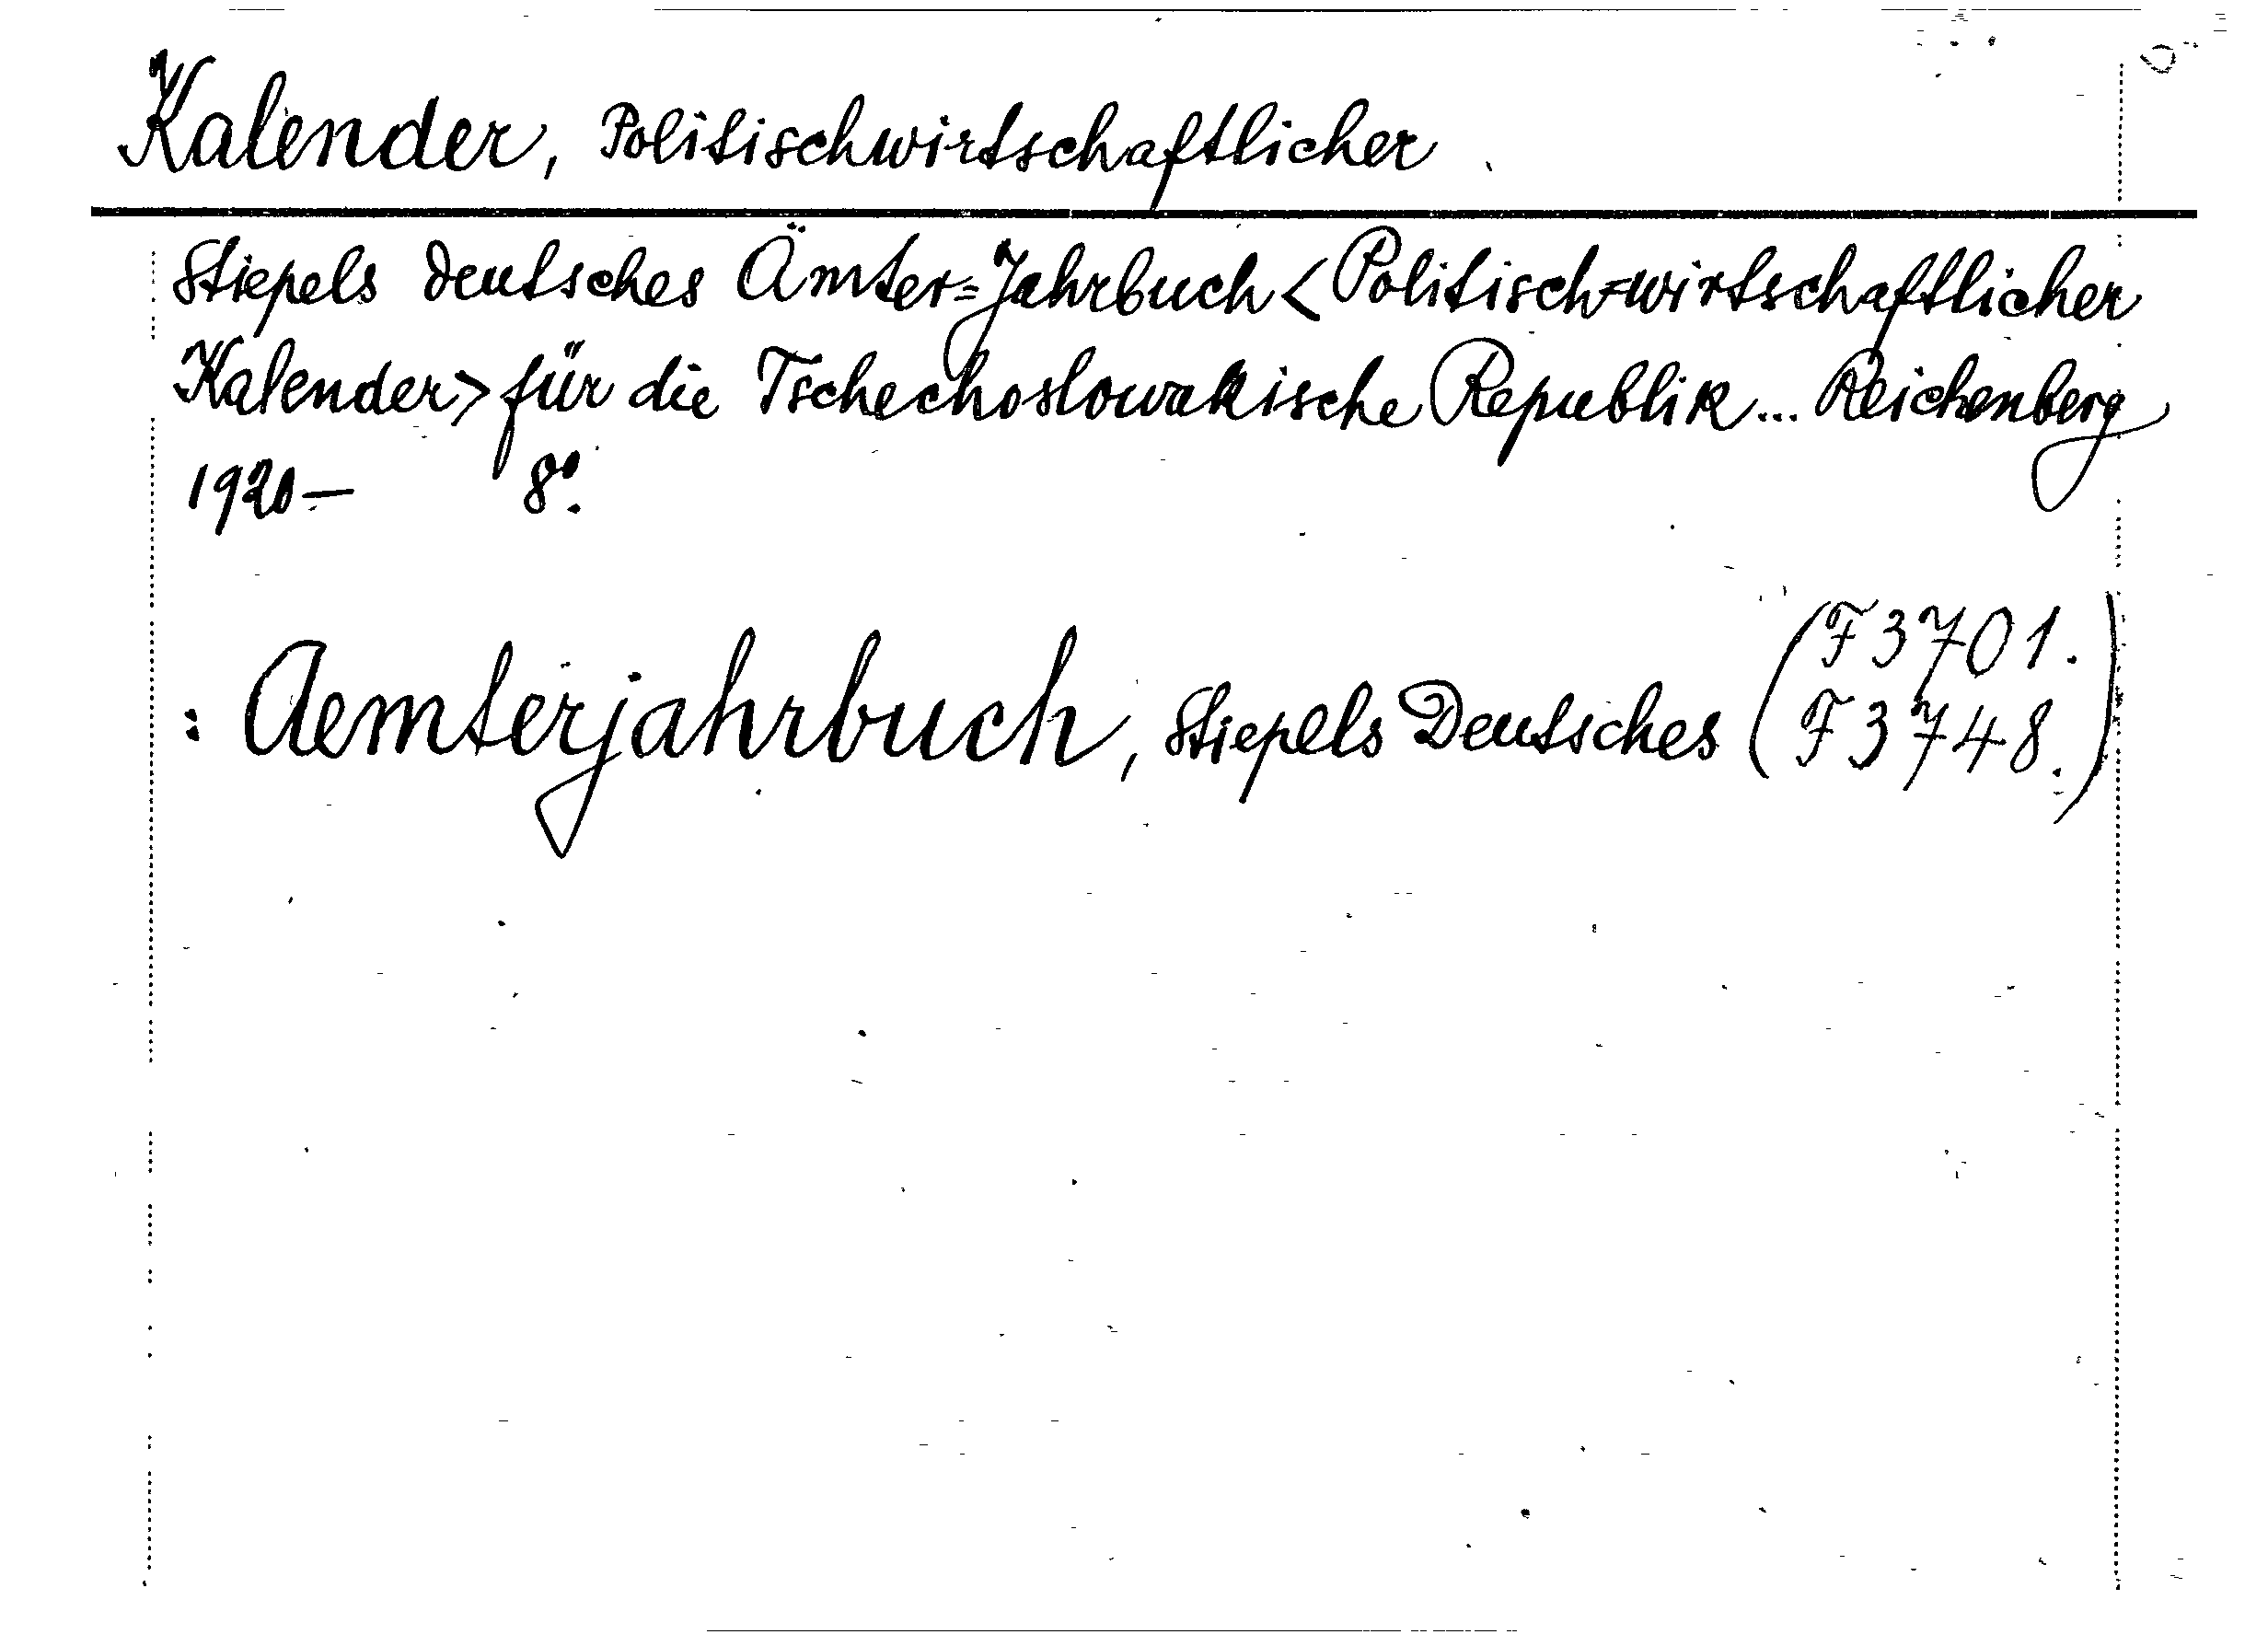 Kalender, Politischwirtschaftlicher
Stiepels deutsches Ämter=Jahrbuch < Politisch=wirtschaftlicher
Kalender > für die Tschechoslowakische Republik... Reichenberg
1920— 8°.
(F 3701.
: Aemterjahrbuch, Stiepels Deutsches F 3748.)